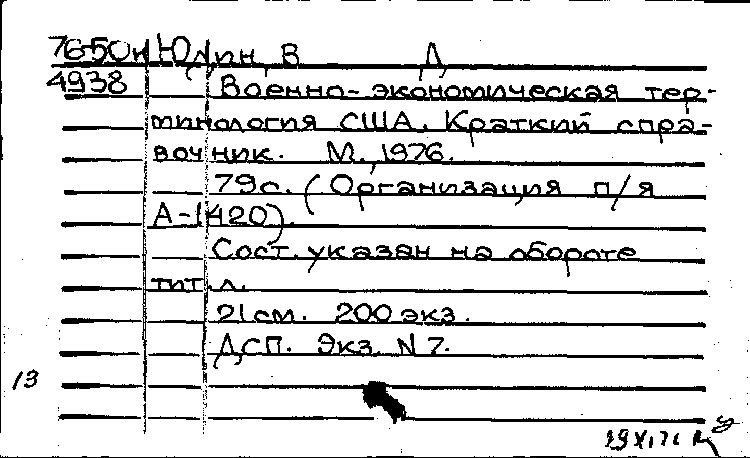 76-50н Юдин, В Д
4938
Военно-экономическая тер-
минология США. Краткий спра-
вочник. М., 1976.
79с. (Организация п/я
А-1420).
Сост. указан на обороте
тит. л.
21 см. 200 экз.
ДСП. Экз. N 7.
13